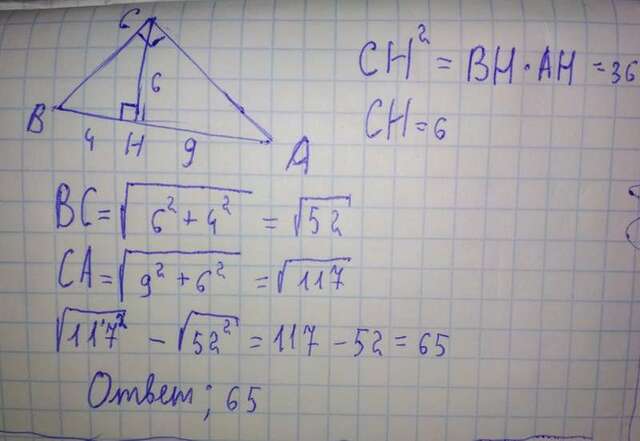 C
6
B
4 H 9 A
CH² = BH · AH = 36
CH = 6
BC = √6² + 4² = √52
CA = √9² + 6² = √117
√117² - √52² = 117 - 52 = 65
Ответ; 65